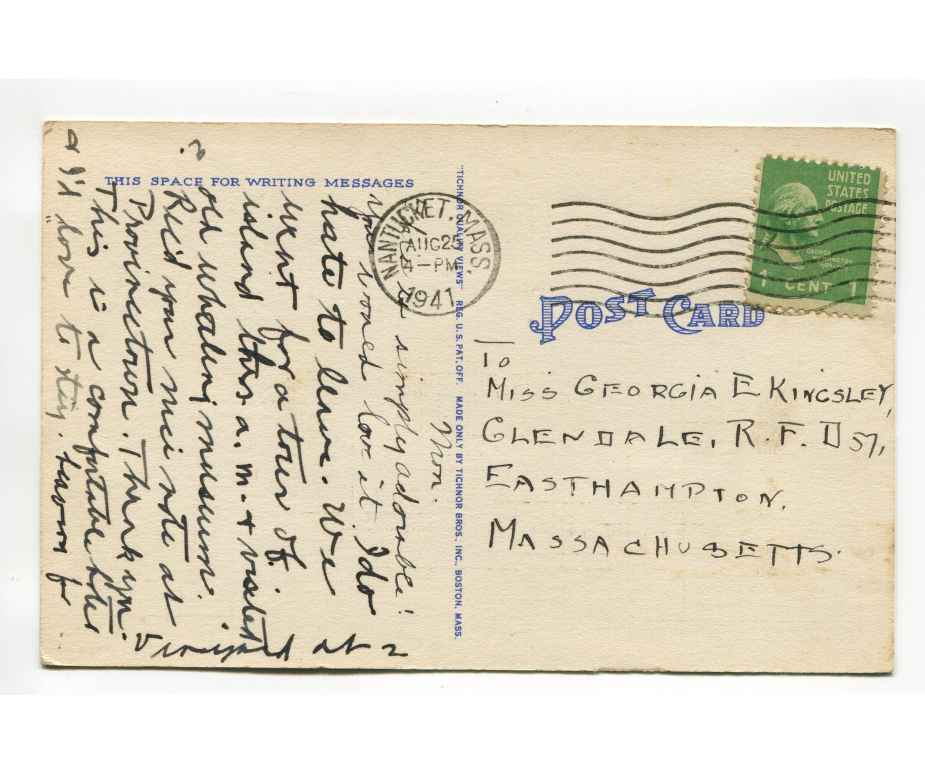 THIS SPACE FOR WRITING MESSAGES
Mon.
simply adorable!
you would love it. I do
hate to leave. We
went for a tour of
island this a.m. + visited
old whaling museum.
Rec'd your nice note at
Provincetown. Thank you.
This is a comfortable hotel
& I'd love to stay. Leaving for
Vineyard at 2
"TICHNOR QUALITY VIEWS" REG. U. S. PAT. OFF. MADE ONLY BY TICHNOR BROS., INC., BOSTON, MASS.
NANTUCKET, MASS.
AUG 25
4 - PM
1941
UNITED
STATES
POSTAGE
1 CENT 1
POST CARD
TO
MISS GEORGIA E KINGSLEY,
GLENDALE, R. F. D 57,
EASTHAMPTON,
MASSACHUSETTS.